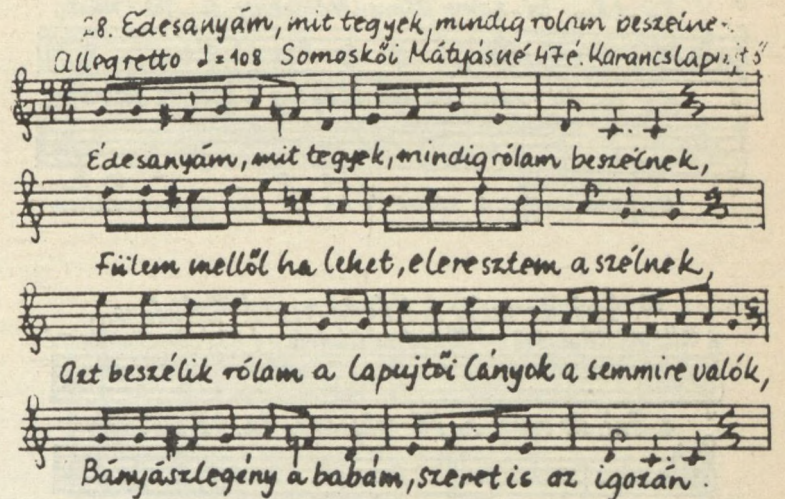 28. Édesanyám, mit tegyek, mindig rólam beszélne
Allegretto ♩=108 Somoskői Mátyásné 47é. Karancslapujtő
Édesanyám, mit tegyek, mindig rólam beszélnek,
Fülem mellől ha lehet, eleresztem a szélnek,
Azt beszélik rólam a lapujtői lányok a semmire valók,
Bányászlegény a babám, szeret is az igazán.